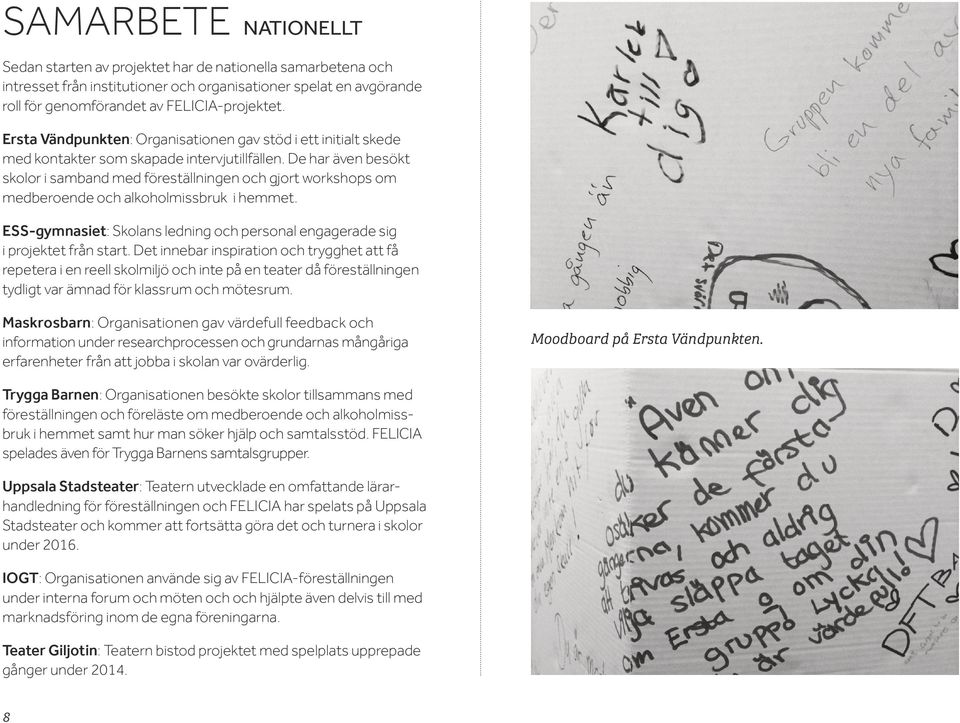 SAMARBETE NATIONELLT
Sedan starten av projektet har de nationella samarbetena och
intresset från institutioner och organisationer spelat en avgörande
roll för genomförandet av FELICIA-projektet.
Ersta Vändpunkten: Organisationen gav stöd i ett initialt skede
med kontakter som skapade intervjutillfällen. De har även besökt
skolor i samband med föreställningen och gjort workshops om
medberoende och alkoholmissbruk i hemmet.
ESS-gymnasiet: Skolans ledning och personal engagerade sig
i projektet från start. Det innebar inspiration och trygghet att få
repetera i en reell skolmiljö och inte på en teater då föreställningen
tydligt var ämnad för klassrum och mötesrum.
Maskrosbarn: Organisationen gav värdefull feedback och
information under researchprocessen och grundarnas mångåriga
erfarenheter från att jobba i skolan var ovärderlig.
Trygga Barnen: Organisationen besökte skolor tillsammans med
föreställningen och föreläste om medberoende och alkoholmiss-
bruk i hemmet samt hur man söker hjälp och samtalsstöd. FELICIA
spelades även för Trygga Barnens samtalsgrupper.
Uppsala Stadsteater: Teatern utvecklade en omfattande lärar-
handledning för föreställningen och FELICIA har spelats på Uppsala
Stadsteater och kommer att fortsätta göra det och turnera i skolor
under 2016.
IOGT: Organisationen använde sig av FELICIA-föreställningen
under interna forum och möten och och hjälpte även delvis till med
marknadsföring inom de egna föreningarna.
Teater Giljotin: Teatern bistod projektet med spelplats upprepade
gånger under 2014.
8
Kärlek
till
dig
Gruppen komme
bli en del av
nya famil
a gången än
jobbig
Det
Moodboard på Ersta Vändpunkten.
"Även om
du känner dig
osäker de första
gångerna, kommer du
att trivas och aldrig
vilja släppa taget
om Ersta o om din
grupp! Lycka
är värdefull!
DFTBA